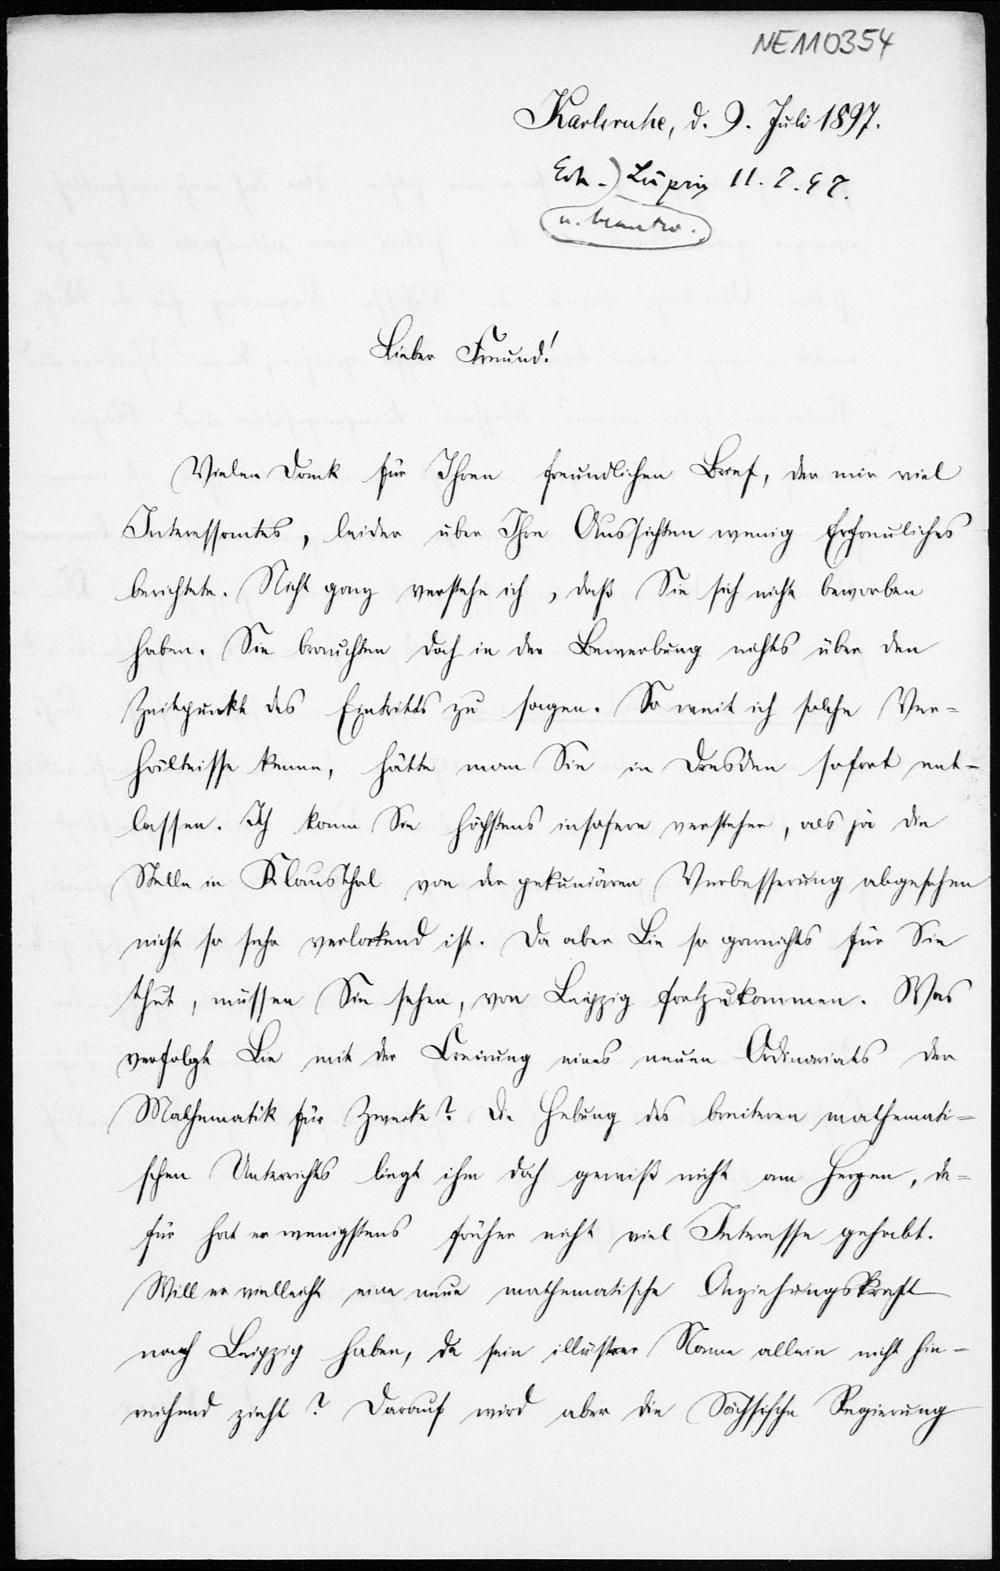 NE110354
Karlsruhe, d. 9. Juli 1897.
Erh.) Leipzig 11.7.97.
u. beantw.
Lieber Freund!
Vielen Dank für Ihren freundlichen Brief, der mir viel
Interessantes, leider über Ihre Aussichten wenig Erfreuliches
berichtete. Nicht ganz verstehe ich, daß Sie sich nicht beworben
haben. Sie brauchten doch in der Bewerbung nichts über den
Zeitpunkt des Eintritts zu sagen. So weit ich solche Ver-
hältnisse kenne, hätte man Sie in Dresden sofort ent-
lassen. Ich kann Sie höchstens insofern verstehen, als ja die
Stelle in Klausthal von der pekuniären Verbesserung abgesehen
nicht so sehr verlockend ist. Da aber Lie so garnichts für Sie
thut, müssen Sie sehen, von Leipzig fortzukommen. Was
verfolgt Lie mit der Creirung eines neuen Ordinariats der
Mathematik für Zwecke? Die Hebung des breiteren mathemati-
schen Unterrichts liegt ihm doch gewiß nicht am Herzen, da-
für hat er wenigstens früher nicht viel Interesse gehabt.
Will er vielleicht eine neue mathematische Anziehungskraft
nach Leipzig haben, da sein illüstrer Name allein nicht hin-
reichend zieht? Darauf wird aber die Sächsische Regierung